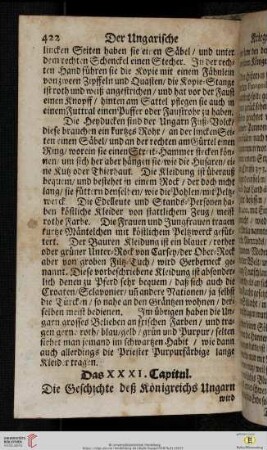 422 Der Ungarische
lincken Seiten haben sie einen Säbel / und unter
dem rechten Schenckel einen Stecher. In der rech-
ten Hand führen sie die Kopie mit einem Fähnlein
von zween Zipffeln und Quasten / die Kopie-Stange
ist roth und weiß angestrichen / und hat vor der Faust
einen Knopff / hinten am Sattel pflegen sie auch in
einem Futtral einen Puffer oder Fauströhr zu haben.
Die Heyducken sind der Ungarn Fuß-Volck /
diese brauchen ein kurtzes Rohr / an der lincken Sei-
ten einen Säbel / und an der rechten am Gürtel einen
Ring / worein sie einen Streit-Hammer stecken kön-
nen / um sich her aber hängen sie / wie die Husaren / ei-
ne Kutz oder Thierhaut. Die Kleidung ist überauß
bequem / und bestehet in einem Rock / der doch nicht
lang / sie füttern denselben / wie die Pohlen / mit Peltz-
werck. Die Edelleute und Stands-Personen ha-
ben köstliche Kleider von stattlichem Zeug / meist
rothe Farbe. Die Frauen und Jungfrauen tragen
kurtze Mäntelchen mit köstlichem Peltzwerck gefüt-
tert. Der Bauren Kleidung ist ein blauer / rother
oder grüner Unter-Rock von Carsey / der Ober-Rock
aber von groben Filtz-Tuch / wird Gerberneck ge-
nannt. Diese vorbeschriebene Kleidung ist absonder-
lich denen zu Pferd sehr bequem / daß sich auch die
Croaten, Sclavonier / und andere Nationen / ja selbst
die Türcken / so nahe an den Gräntzen wohnen / der-
selben meist bedienen. Im übrigen haben die Un-
garn grosses Belieben an frischen Farben / und tra-
gen gern roth / blau / gelb / grün und Purpur / selten
siehet man jemand im schwartzen Habit / wie dann
auch allerdings die Priester Purpurfärbige lange
Kleider tragen.
Das XXXI. Capitul.
Die Geschichte deß Königreichs Ungarn
wird